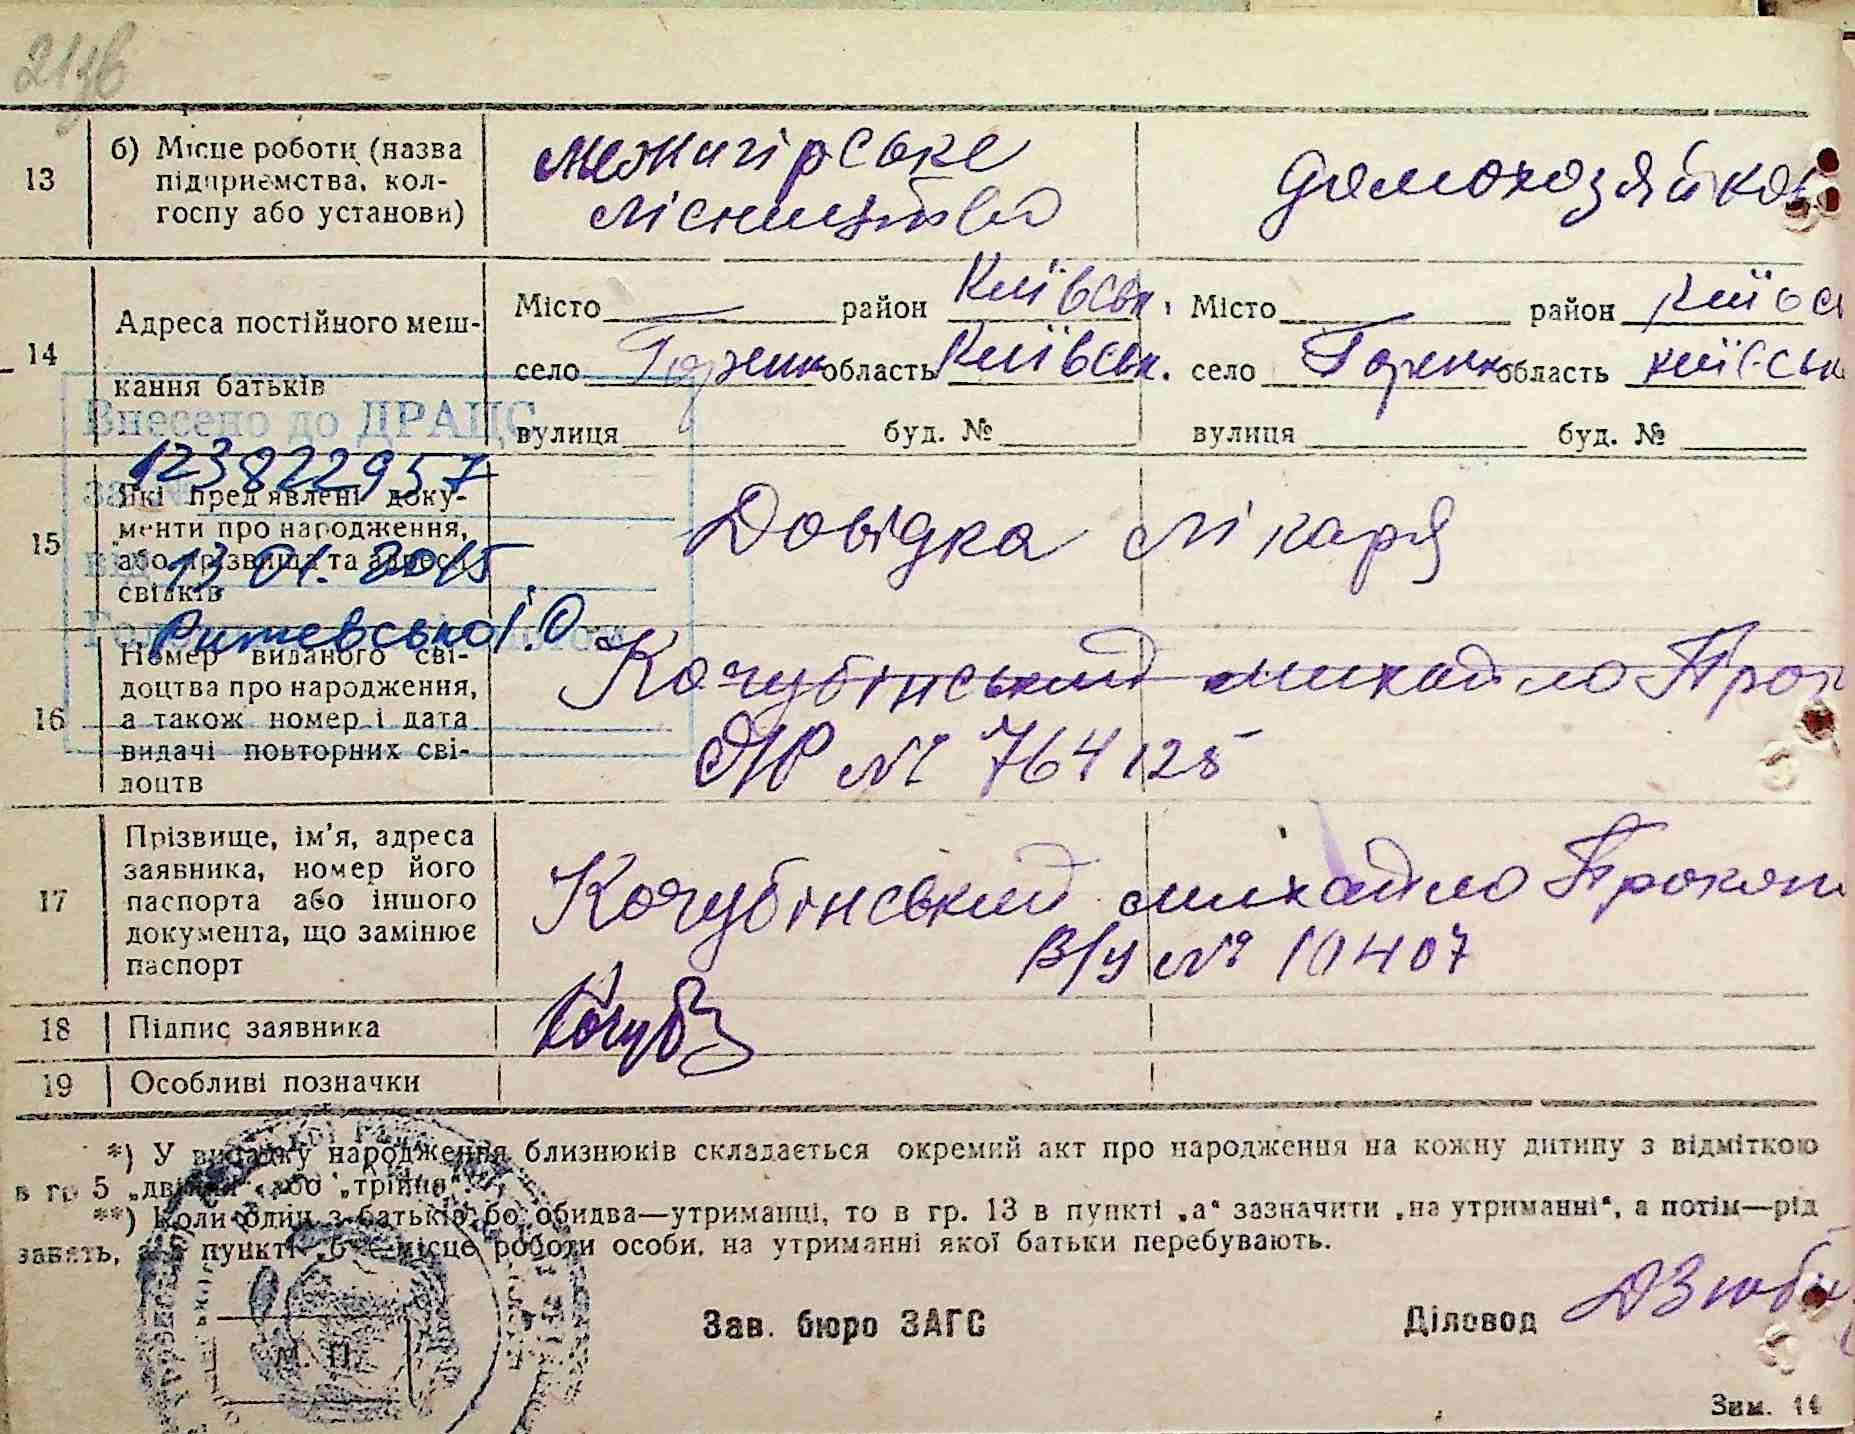 21зв
13
б) Місце роботи (назва
підприємства, кол-
госпу або установи)
межигірське
лісництво
домохозяйка
14
Адреса постійного меш-
кання батьків
Місто район Київськ.
село Горенк область Київськ.
вулиця буд. №
Місто район Київсь
село Горенк область київськ
вулиця буд. №
Внесено до ДРАЦС
за № 123822957
від 13 01. 2015
15
Які пред'явлені доку-
менти про народження,
або прізвища та адреси
свідків
Довідка лікаря
16
Номер виданого сві-
доцтва про народження,
а також номер і дата
видачі повторних сві-
доцтв
Кочубінський михайло Прок
№ 764125
17
Прізвище, ім'я, адреса
заявника, номер його
паспорта або іншого
документа, що замінює
паспорт
Кочубінський михайло Прокоп
В/у № 10407
18
Підпис заявника
Кочуб
19
Особливі позначки
*) У випадку народження близнюків складається окремий акт про народження на кожну дитину з відміткою
в гр 5 „двійня“ або „трійня“.
**) Коли один з батьків бо обидва—утриманці, то в гр. 13 в пункті „а“ зазначити „на утриманні“, а потім—рід
занять, а в пункті „б“—місце роботи особи, на утриманні якої батьки перебувають.
М. П.
Зав. бюро ЗАГС
Діловод Дзюба
Зам. 14